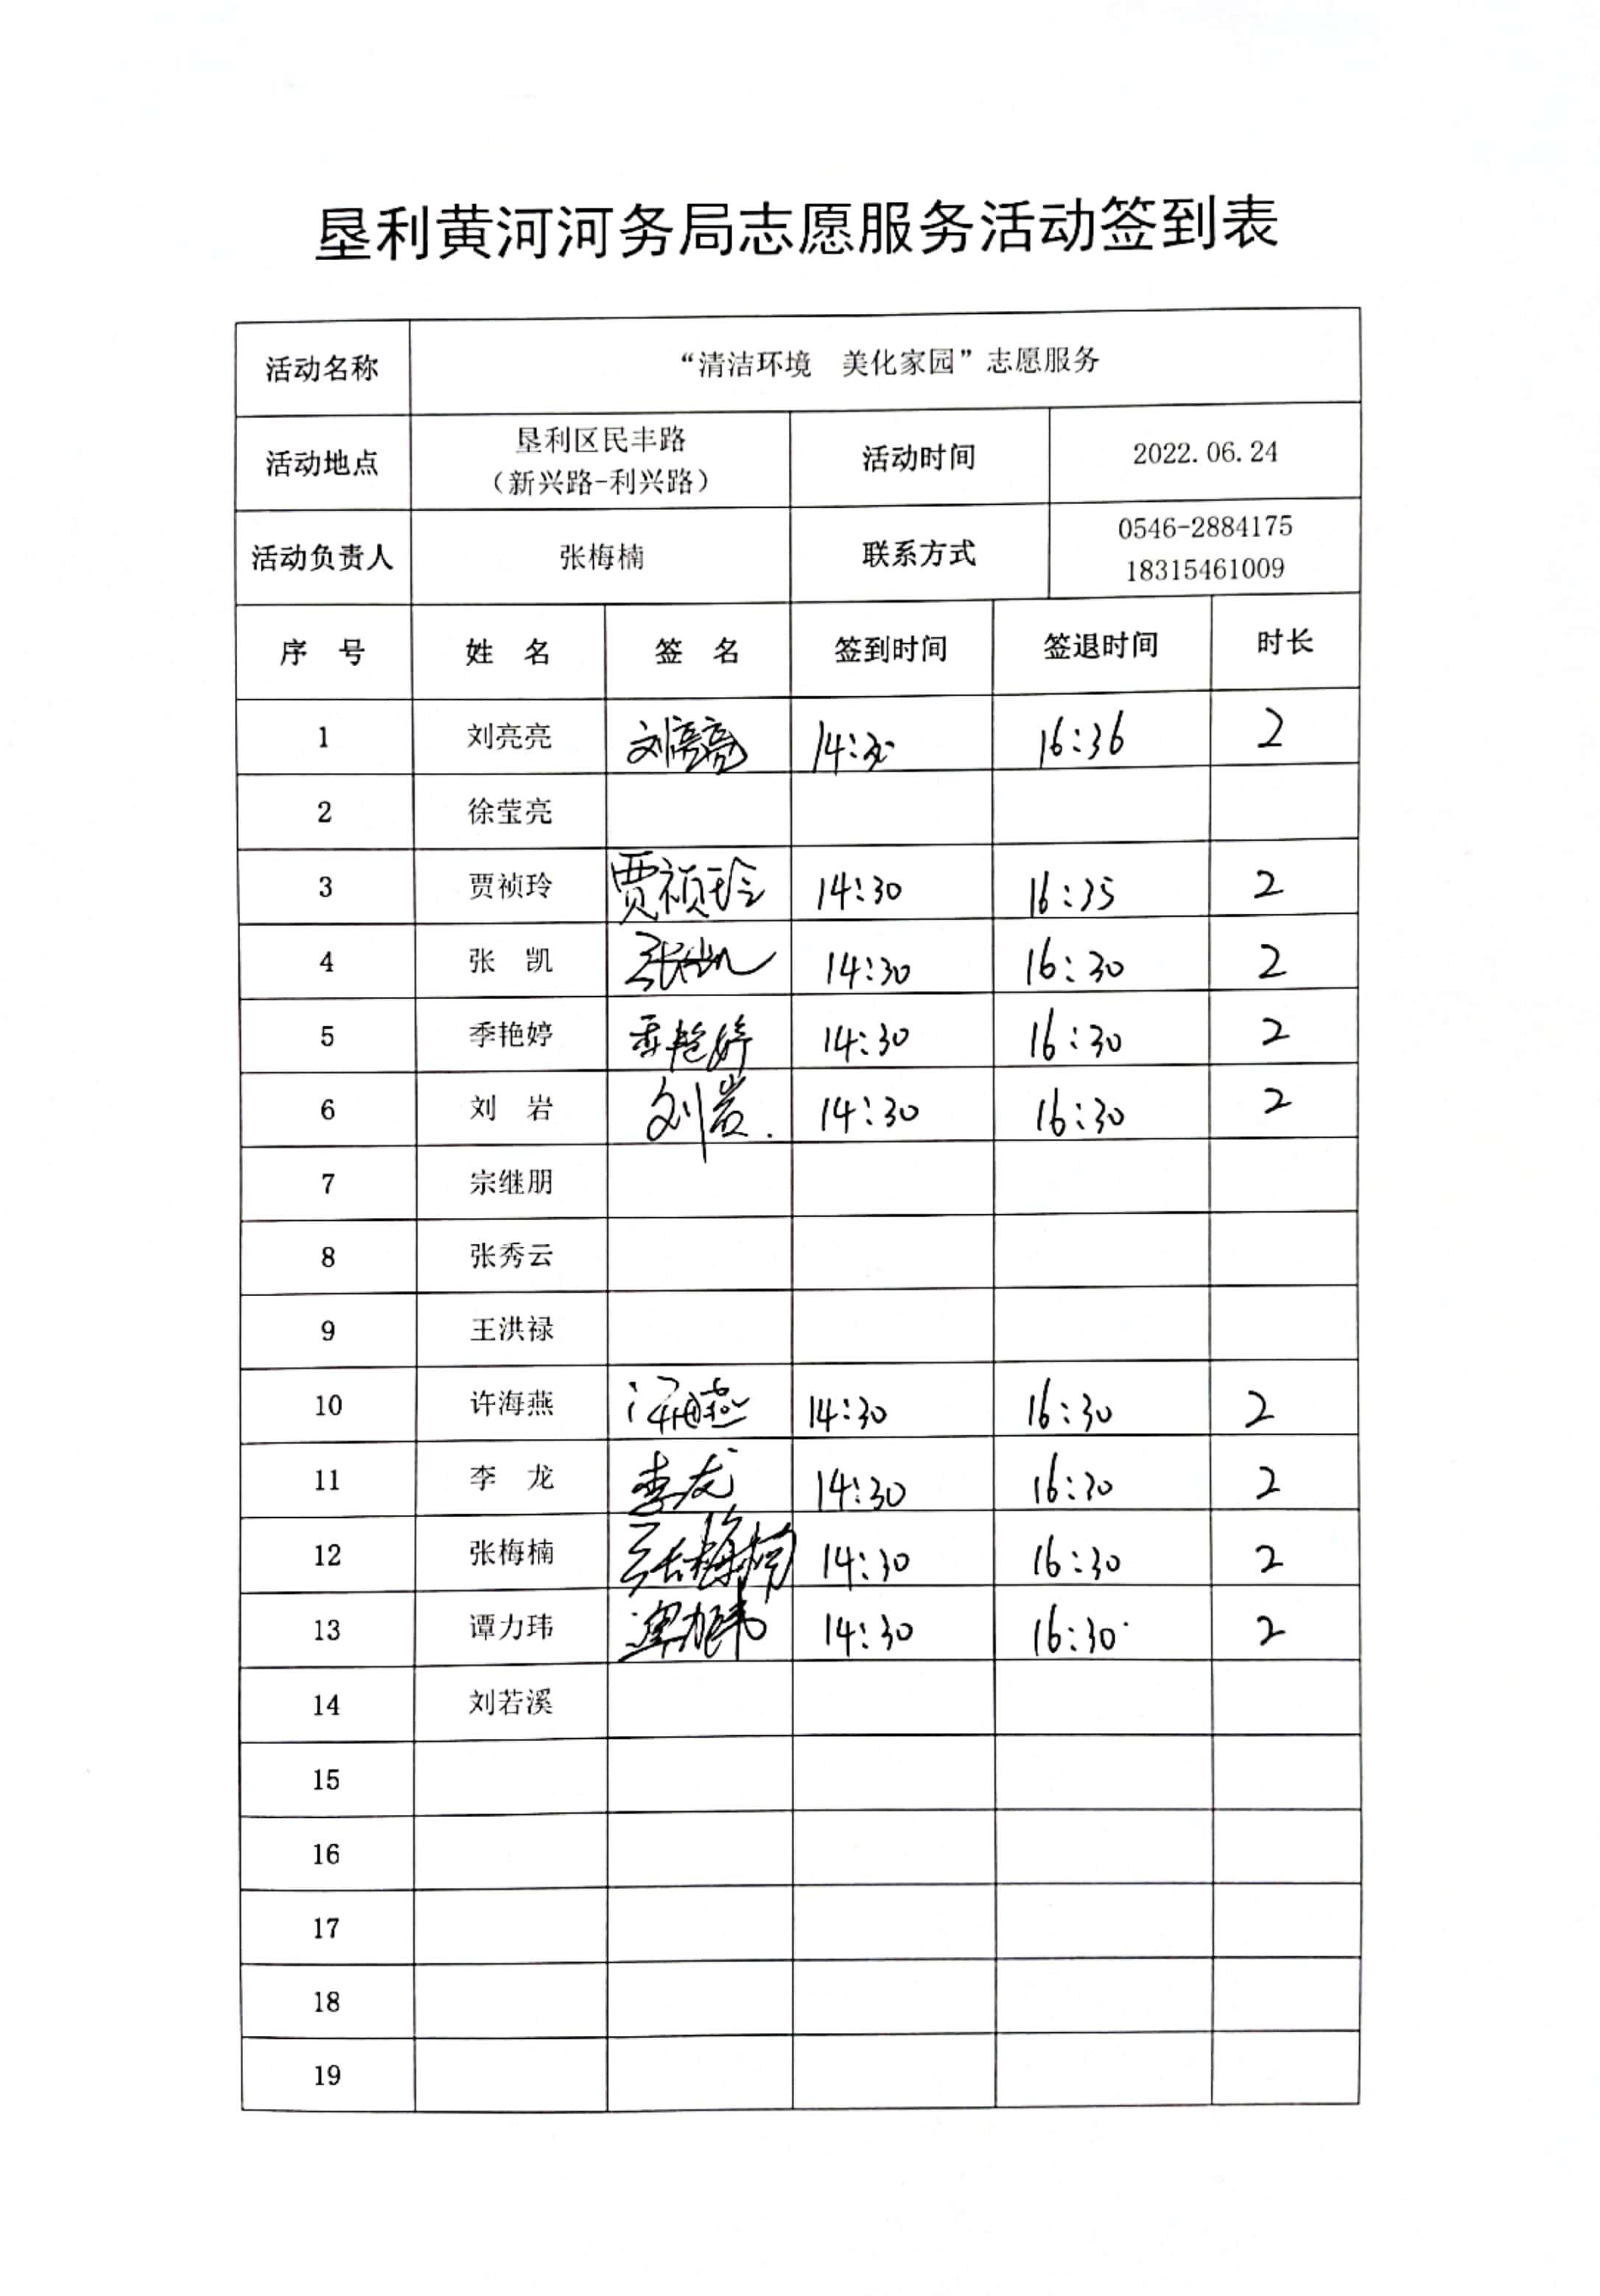 垦利黄河河务局志愿服务活动签到表
活动名称 “清洁环境 美化家园”志愿服务
活动地点 垦利区民丰路 (新兴路-利兴路) 活动时间 2022.06.24
活动负责人 张梅楠 联系方式 0546-2884175 18315461009
序 号 姓 名 签 名 签到时间 签退时间 时长
1 刘亮亮 刘亮亮 14:30 16:36 2
2 徐莹亮
3 贾祯玲 贾祯玲 14:30 16:35 2
4 张 凯 张凯 14:30 16:30 2
5 季艳婷 季艳婷 14:30 16:30 2
6 刘 岩 刘岩. 14:30 16:30 2
7 宗继朋
8 张秀云
9 王洪禄
10 许海燕 许海燕 14:30 16:30 2
11 李 龙 李龙 14:30 16:30 2
12 张梅楠 张梅楠 14:30 16:30 2
13 谭力玮 谭力玮 14:30 16:30 2
14 刘若溪
15
16
17
18
19